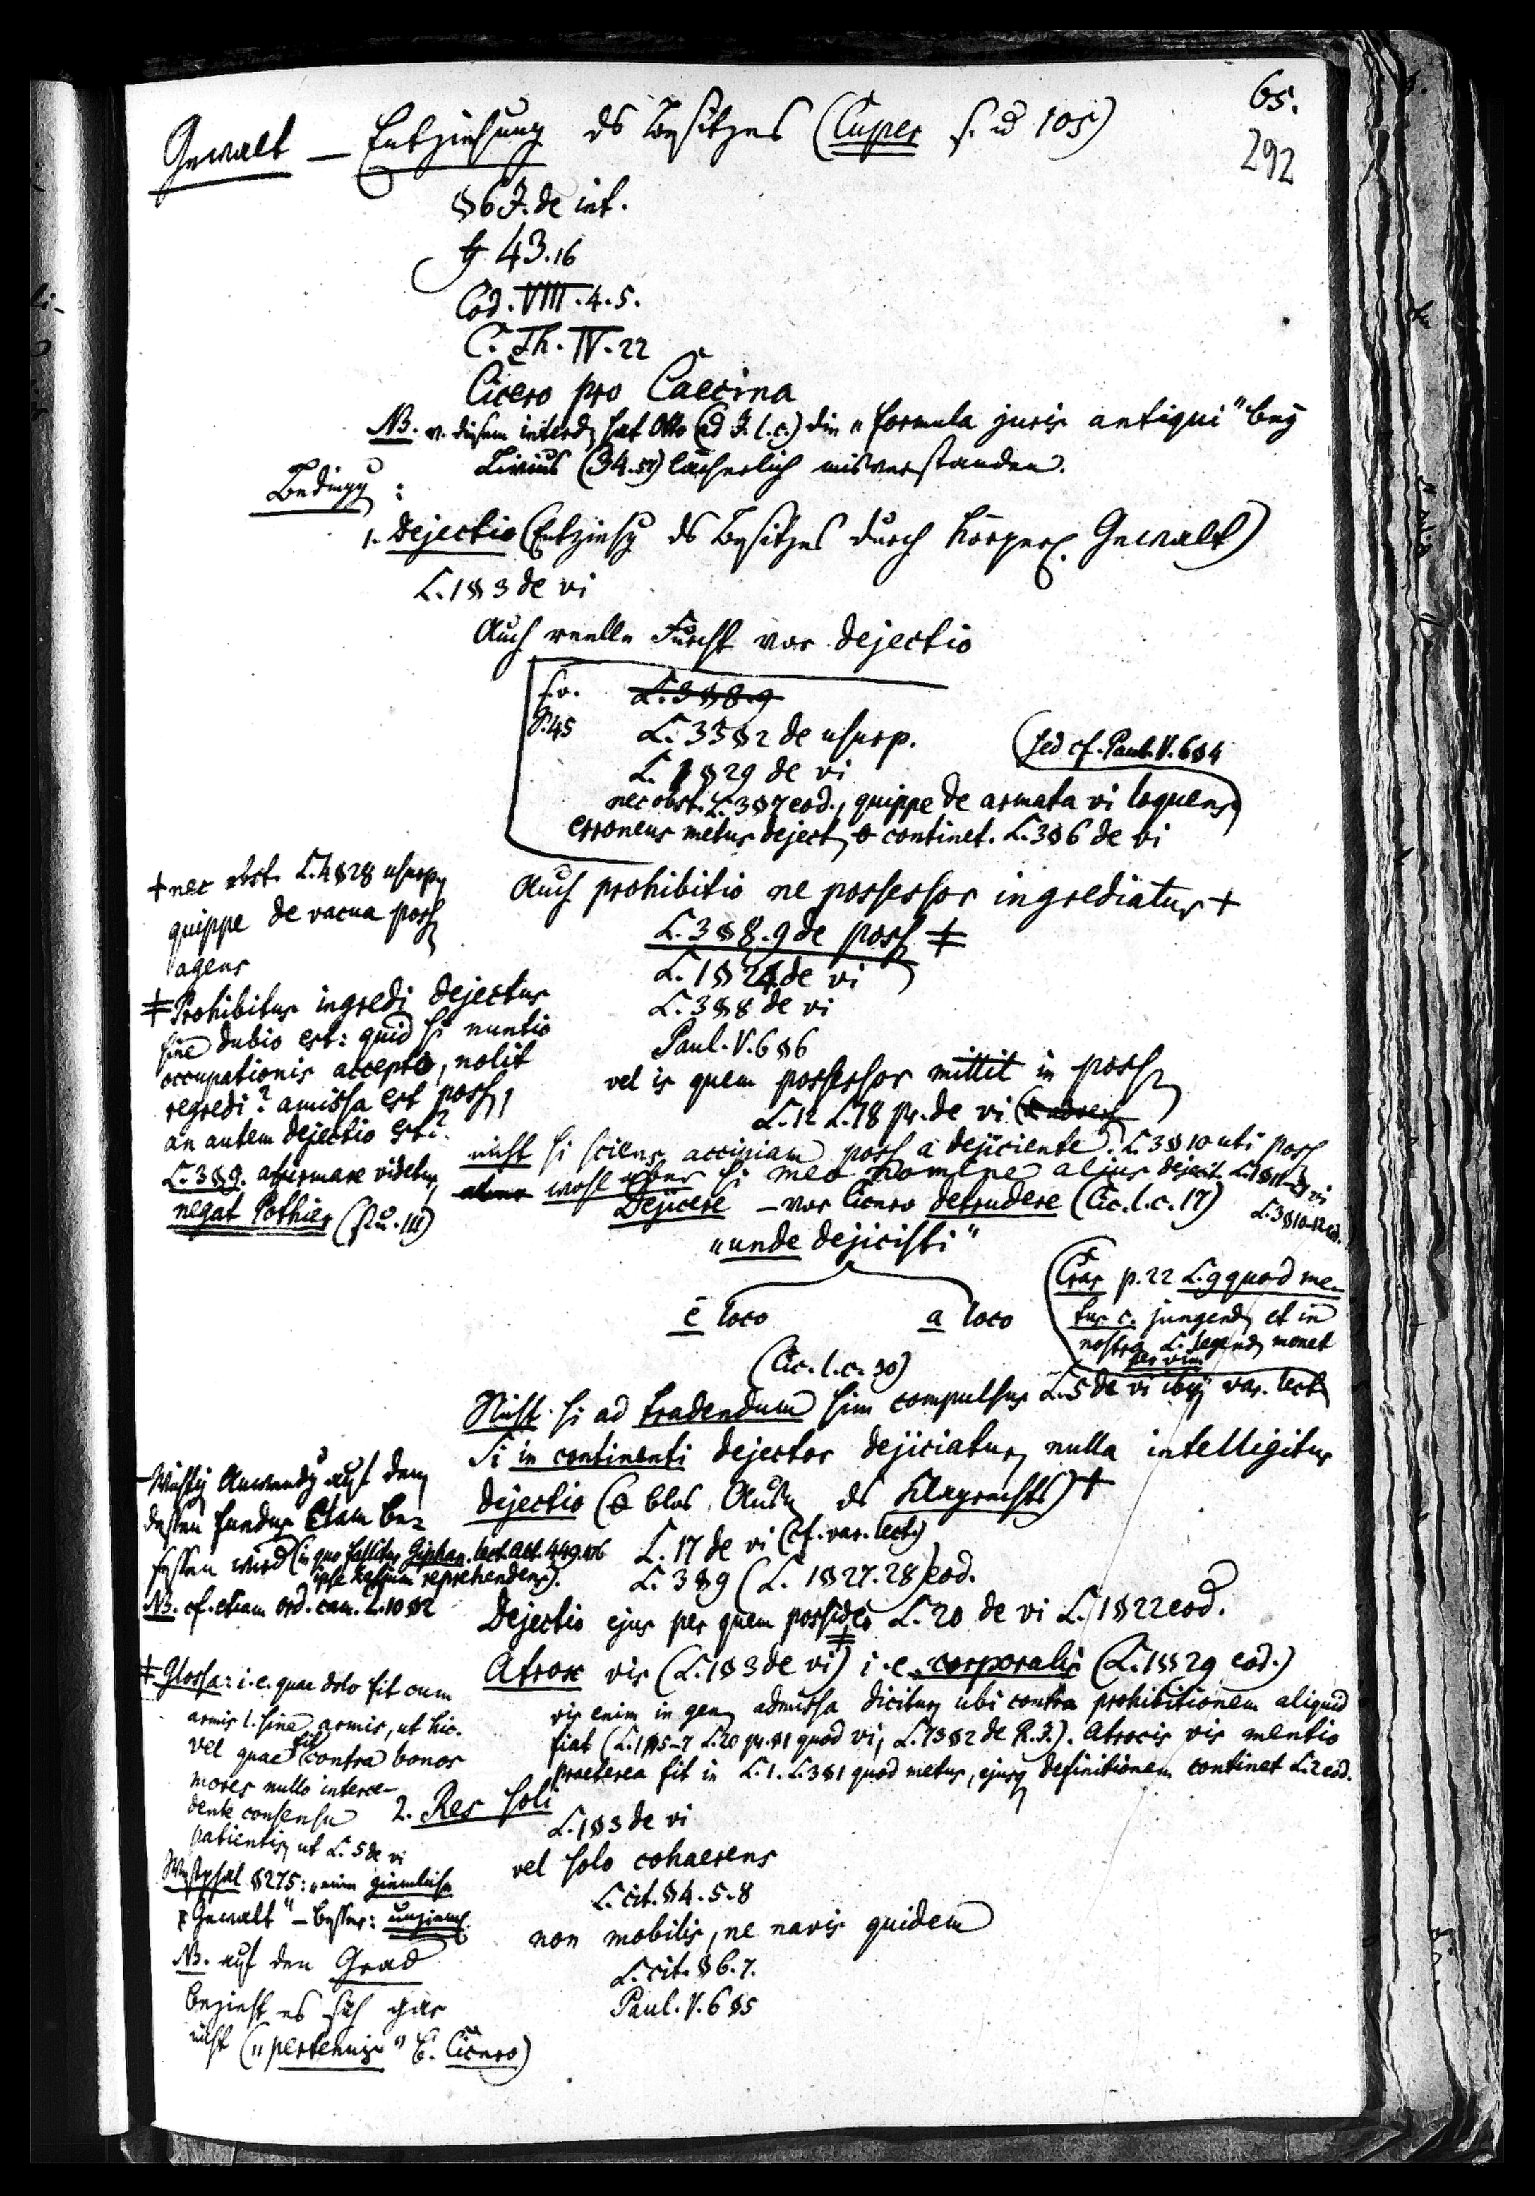 65.
292
Gewalt — Entziehung ds Besitzes (Cuper s. u 105)
§ 6 J. de int.
ff 43.16
Cod. VIII. 4. 5.
C. Th. IV. 22
Cicero pro Caecina
NB. v. diesem interd, hat Otto (ad J. l. c.) die „formula juris antiqui" bey
Livius (34.) lächerlich misverstanden.
Bedingg:
1. Dejectio (Entziehg ds Besitzes durch körperl. Gewalt)
L. 1 § 3 de vi
Auch reelle Furcht vor dejectio
L. 3 § 8. 9
P. 45
L. 33 § 2 de usurp.
(sed cf. Paul. V. 6 § 4
L. 1 § 29 de vi
nec obst. L. 3 § 7 eod., quippe de armata vi loquens,
erroneus metus deject, continet. L. 3 § 6 de vi
Auch prohibitio ne possessor ingrediatur +
L. 3 § 8. 9 de poss ‡
L. 1 § 24 de vi
L. 3 § 8 de vi
Paul. V. 6 § 6
vel is quem possessor mittit in poss
L. 12 L. 18 pr. de vi
nicht si sciens accipiam poss a dejiciente. L. 3 § 10 uti poss
wohl aber si meo nomine alius dejecit. L. 1 § 12 vi
L. 3 § 10-12 eod.
Dejicere — vor Cicero detrudere (Cic. l. c. 17)
„unde dejicisti"
e loco a loco
(Cic. l. c. 30)
(Cras p. 22 L. 9 quod me-
tus c. jungend, et in
nostra L. legend, monet
per vim
Nicht si ad tradendum sim compulsus L. 5 de vi ibiq var. lect
Si in continenti dejector dejiciatur, nulla intelligitur
dejectio (blos Ausn ds Klagrechts) +
L. 17 de vi (cf. var. lect.)
L. 3 § 9 (L. 1 § 27. 28) eod.
Dejectio ejus per quem possideo L. 20 de vi L. 1 § 22 eod.
Atrox vis (L. 1 § 3 de vi) ‡ i. e. corporalis (L. 1 § 29 eod.)
vis enim in gen, admissa dicitur, ubi contra prohibitionem aliquid
fiat (L. 1 § 5-7 L. 20 pr. § 1 quod vi, L. 73 § 2 de R. J.). Atrocis vis mentio
praeterea fit in L. 1. L. 3 § 1 quod metus, ejusq definitionem continet L. 2 eod.
2. Res soli
L. 1 § 3 de vi
vel solo cohaerens
L. cit. § 4. 5. 8
non mobilis, ne navis quidem
L. cit. § 6. 7.
Paul. V. 6 § 5
+ nec obst. L. 4 § 28 usurp,
quippe de vacua poss
agens
‡ Prohibitus ingredi dejectus
sine dubio est: quid si nuntio
occupationis accepto, nolit
regredi? amissa est poss,
an autem dejectio est?
L. 3 § 9. affirmare videtur,
negat Pothier (nu. 111)
Wichtig Anwendg auf den
dessen fundus clam be-
sessen wird (in quo fallitur Giphan. lect. alt. 449.
ipse reprehendens).
NB. cf. etiam ord. cam. 2. 10 § 2
‡ Glossa: i. e. quae dolo fit cum
armis l. sine armis, ut hic.
vel quae fit contra bonos
mores nullo interce-
dente consensu
patientis, ut L. 5 de vi
Westphal § 275: „eine ziemliche
Gewalt" — besser: unzieml.
NB. auf den Grad
bezieht es sich gar
nicht („pertenuis" b. Cicero)